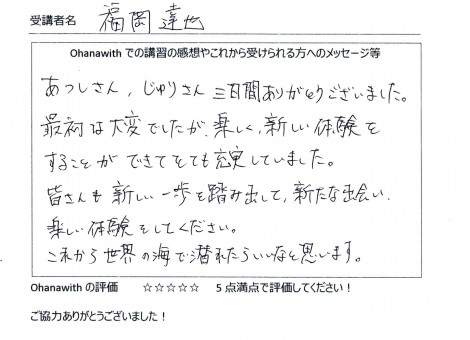 受講者名 福岡達也
Ohanawith での講習の感想やこれから受けられる方へのメッセージ等
あつしさん，じゅりさん 三日間ありがとうございました。
最初は大変でしたが、楽しく、新しい体験を
することができてとても充実していました。
皆さんも新しい一歩を踏み出して、新たな出会い、
楽しい体験をしてください。
これから世界の海で潜れたらいいなと思います。
Ohanawith の評価 ☆☆☆☆☆ 5 点満点で評価してください！
ご協力ありがとうございました！